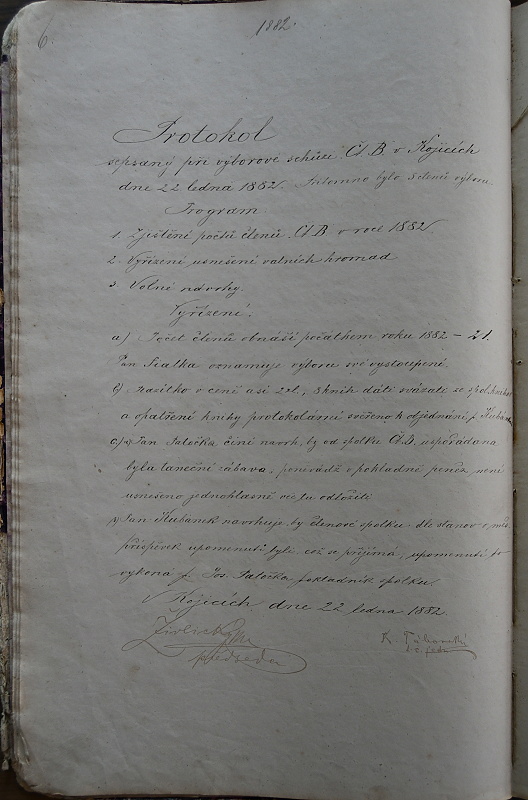 6.
1882
Protokol
sepsaný při výborové schůzi Čt. B. v Kojicích
dne 22 ledna 1882. Přítomno bylo 5 členů výboru.
Program
1. Zjištění počtů členů Čt. B v roce 1882.
2. Vyřízení usnešení valních hromad
3. Volné návrhy.
Vyřízení.
a) Počet členů obnáší počátkem roku 1882 – 21.
Pan Sialka oznamuje výboru své vystoupení.
b) razítko v ceně asi 2 zl., 8 knih dáti svázati ze spol. knihov
a opatření knihy protokolární svěřeno k objednání p.
c) α) Pan Patočka činí navrh, by od spolku Čt. B. uspořádana
byla taneční zábava, poněvádž v pokladně peněz není
usnešeno jednohlasně věc tu odložiti
β) Pan Kubanek navrhuje, by členové spolku dle stanov o
příspěvek upomenuti byli, což se přijímá, upomenutí to
vykoná p. Jos. Patočka pokladník spolku.
V Kojicích dne 22 ledna 1882.
předseda
K.